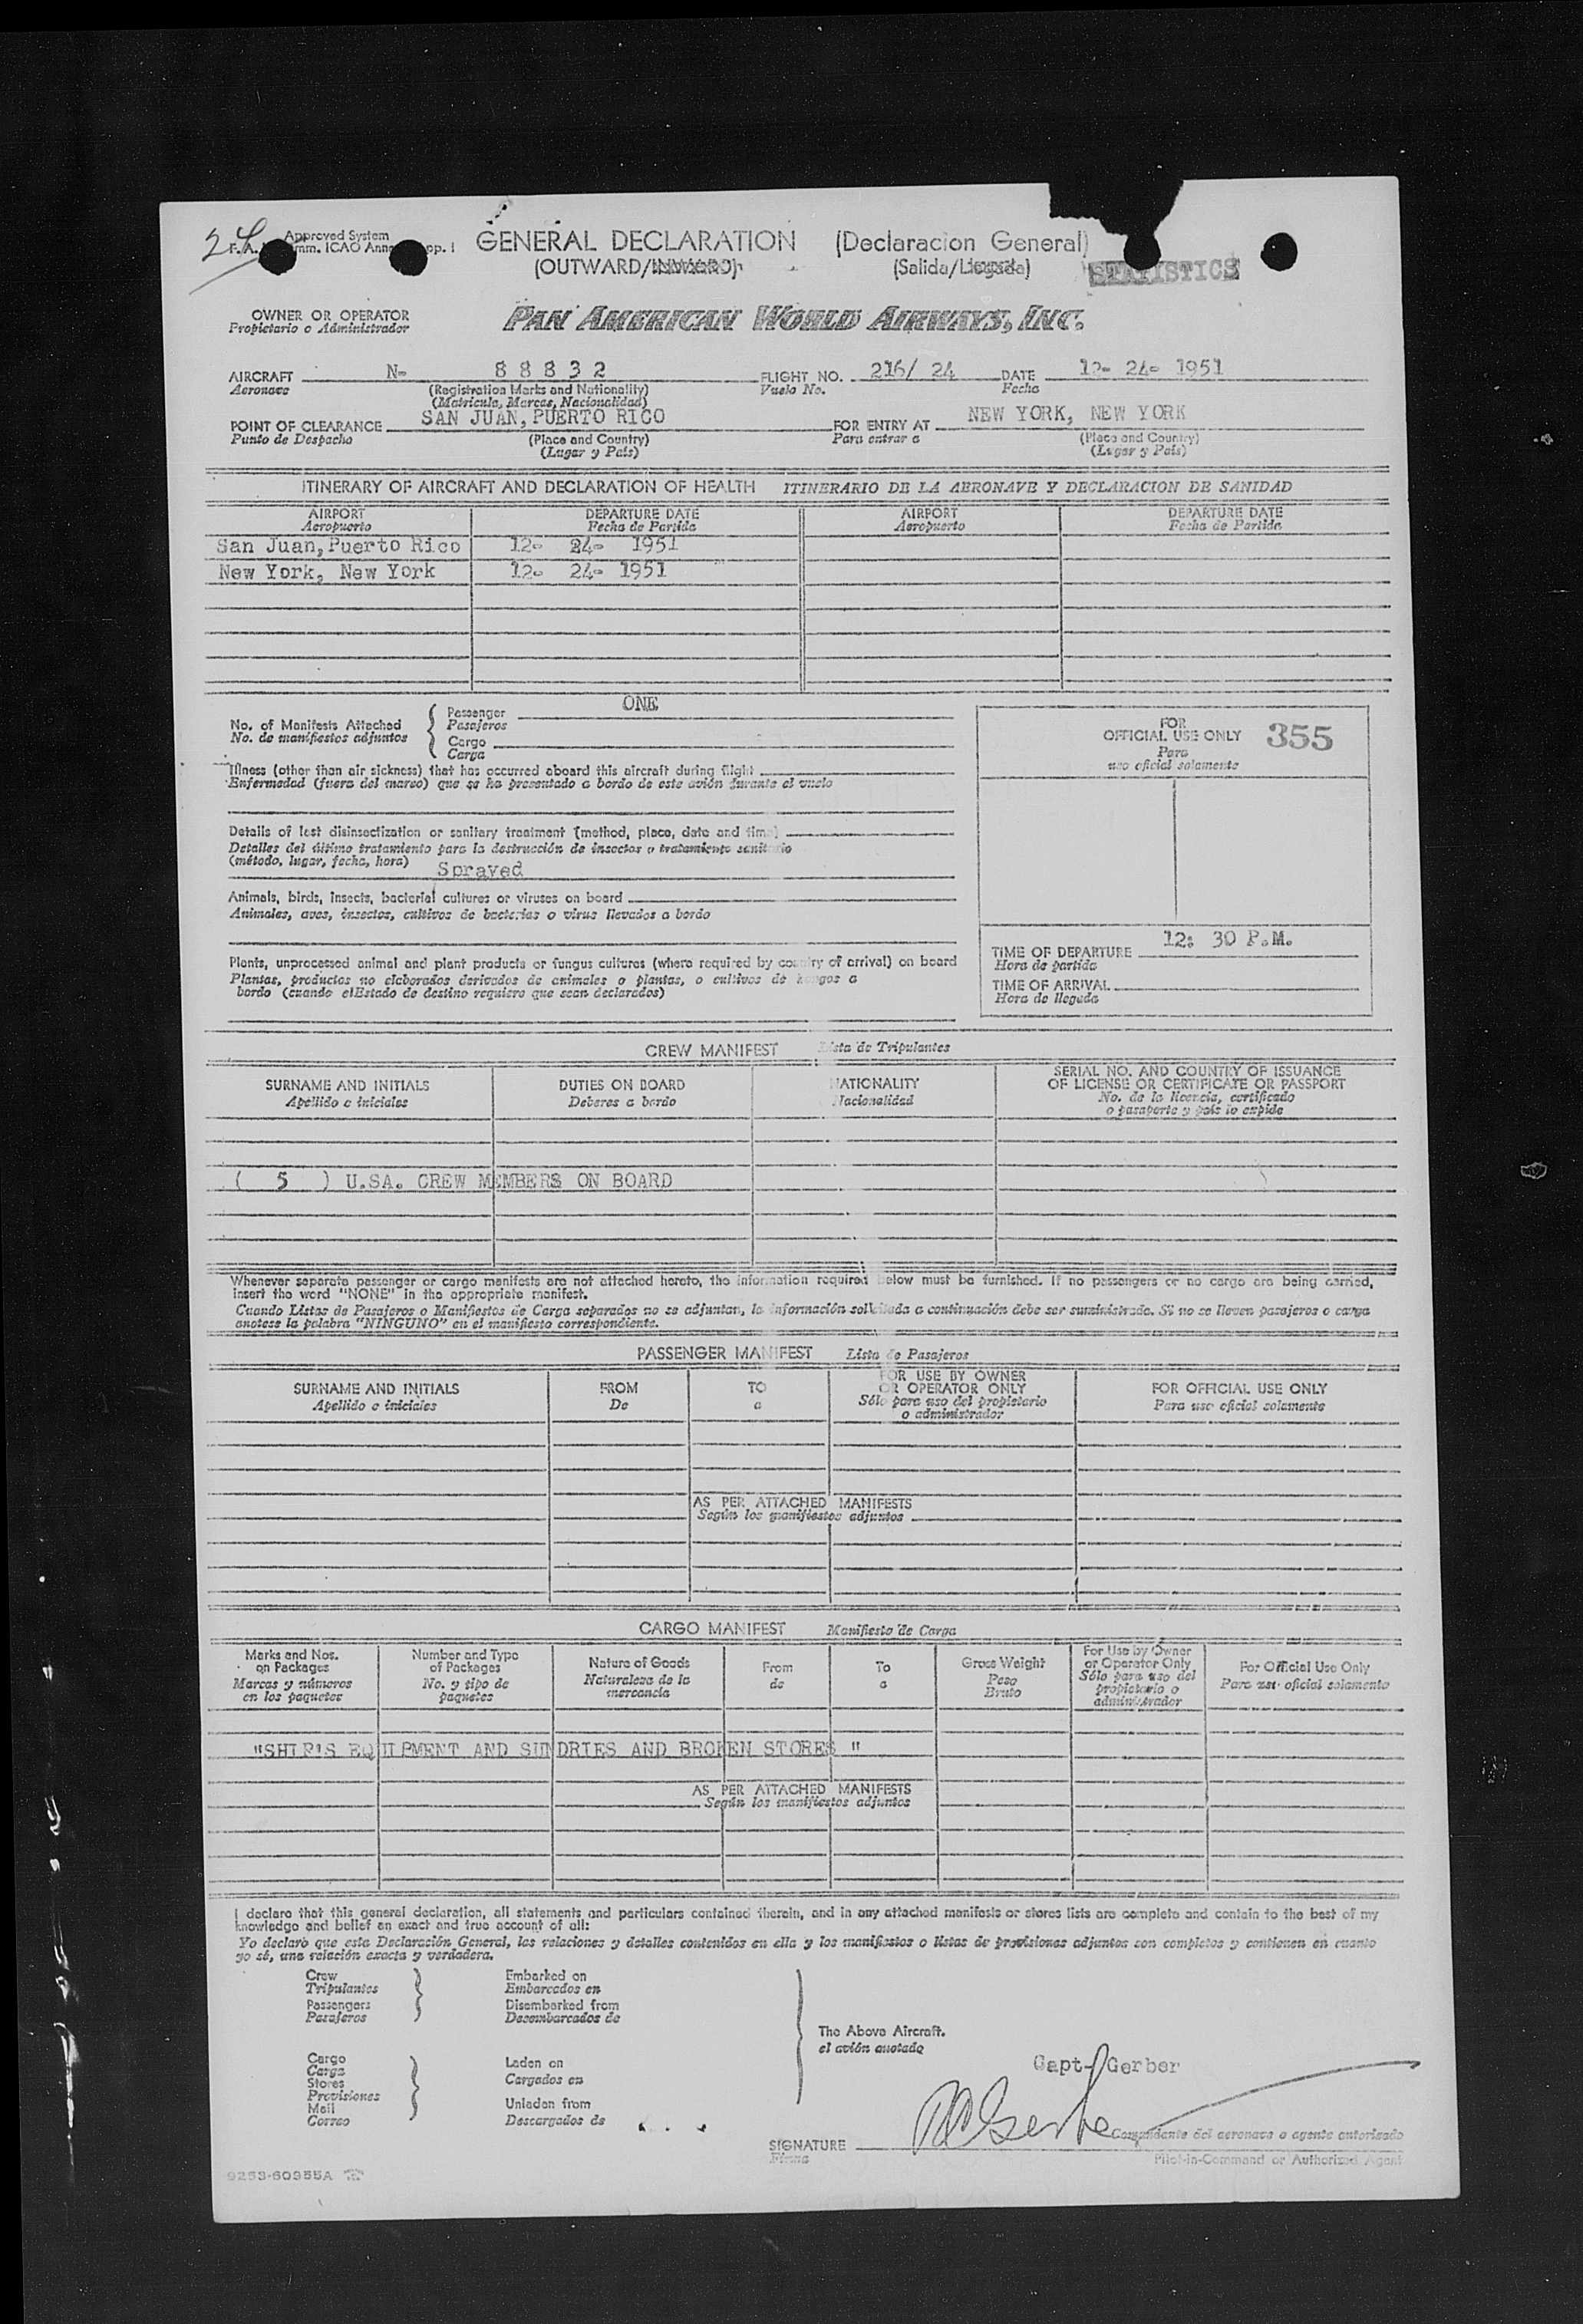 24
Approved System
GENERAL DECLARATION (Declaracion General)
(OUTWARD/INWARD) (Salida/Llegada)
STATISTICS
OWNER OR OPERATOR
Propietario o Administrador
PAN AMERICAN WORLD AIRWAYS, INC.
AIRCRAFT N- 88832 FLIGHT NO. 216/ 24 DATE 12- 24- 1951
Aeronave (Registration Marks and Nationality) Vuelo No. Fecha
(Matricula, Marcas, Nacionalidad)
POINT OF CLEARANCE SAN JUAN, PUERTO RICO FOR ENTRY AT NEW YORK, NEW YORK
Punto de Despacho (Place and Country) Para entrar a (Place and Country)
(Lugar y País) (Lugar y País)
ITINERARY OF AIRCRAFT AND DECLARATION OF HEALTH ITINERARIO DE LA AERONAVE Y DECLARACION DE SANIDAD
AIRPORT DEPARTURE DATE AIRPORT DEPARTURE DATE
Aeropuerto Fecha de Partida Aeropuerto Fecha de Partida
San Juan, Puerto Rico 12- 24- 1951
New York, New York 12- 24- 1951
No. of Manifests Attached
No. de manifiestos adjuntos
Passenger ONE
Pasajeros
Cargo
Carga
FOR
OFFICIAL USE ONLY 355
Para
uso oficial solamente
Illness (other than air sickness) that has occurred aboard this aircraft during flight
Enfermedad (fuera del mareo) que se ha presentado a bordo de este avión durante el vuelo
Details of last disinsectization or sanitary treatment (method, place, date and time)
Detalles del último tratamiento para la destrucción de insectos o tratamiento sanitario
(método, lugar, fecha, hora)
Sprayed
Animals, birds, insects, bacterial cultures or viruses on board
Animales, aves, insectos, cultivos de bacterias o virus llevados a bordo
Plants, unprocessed animal and plant products or fungus cultures (where required by country of arrival) on board
Plantas, productos no elaborados derivados de animales o plantas, o cultivos de hongos a
bordo (cuando elEstado de destino requiere que sean declarados)
TIME OF DEPARTURE 12: 30 P.M.
Hora de partida
TIME OF ARRIVAL
Hora de llegada
CREW MANIFEST Lista de Tripulantes
SURNAME AND INITIALS DUTIES ON BOARD NATIONALITY SERIAL NO. AND COUNTRY OF ISSUANCE
OF LICENSE OR CERTIFICATE OR PASSPORT
Apellido e iniciales Deberes a bordo Nacionalidad No. de la licencia, certificado
o pasaporte y país lo expide
( 5 ) U.SA. CREW MEMBERS ON BOARD
Whenever separate passenger or cargo manifests are not attached hereto, the information required below must be furnished. If no passengers or no cargo are being carried,
insert the word "NONE" in the appropriate manifest.
Cuando Listas de Pasajeros o Manifiestos de Carga separados no se adjuntan, la información solicitada a continuación debe ser suministrada. Si no se lleven pasajeros o carga
anotese la palabra "NINGUNO" en el manifiesto correspondiente.
PASSENGER MANIFEST Lista de Pasajeros
SURNAME AND INITIALS FROM TO FOR USE BY OWNER
OR OPERATOR ONLY FOR OFFICIAL USE ONLY
Apellido e iniciales De a Sólo para uso del propietario
o administrador Para uso oficial solamente
AS PER ATTACHED MANIFESTS
Según los manifiestos adjuntos
CARGO MANIFEST Manifiesto de Carga
Marks and Nos.
on Packages
Marcas y números
en los paquetes
Number and Type
of Packages
No. y tipo de
paquetes
Nature of Goods
Naturaleza de la
mercancia
From
de
To
a
Gross Weight
Peso
Bruto
For Use by Owner
or Operator Only
Sólo para uso del
propietario o
administrador
For Official Use Only
Para uso oficial solamente
"SHIP'S EQUIPMENT AND SUNDRIES AND BROKEN STORES "
AS PER ATTACHED MANIFESTS
Según los manifiestos adjuntos
I declare that this general declaration, all statements and particulars contained therein, and in any attached manifests or stores lists are complete and contain to the best of my
knowledge and belief an exact and true account of all:
Yo declaro que esta Declaración General, las relaciones y detalles contenidos en ella y los manifiestos o listas de provisiones adjuntos son completos y contienen en cuanto
yo sé, una relación exacta y verdadera.
Crew
Tripulantes
Passengers
Pasajeros
Embarked on
Embarcados en
Disembarked from
Desembarcados de
The Above Aircraft.
el avión anotado
Cargo
Carga
Stores
Provisiones
Mail
Correo
Laden on
Cargados en
Unladen from
Descargados de
Capt- Gerber
SIGNATURE
Firma
Comandante del aeronave o agente autorizado
Pilot-in-Command or Authorized Agent
9253-60955A